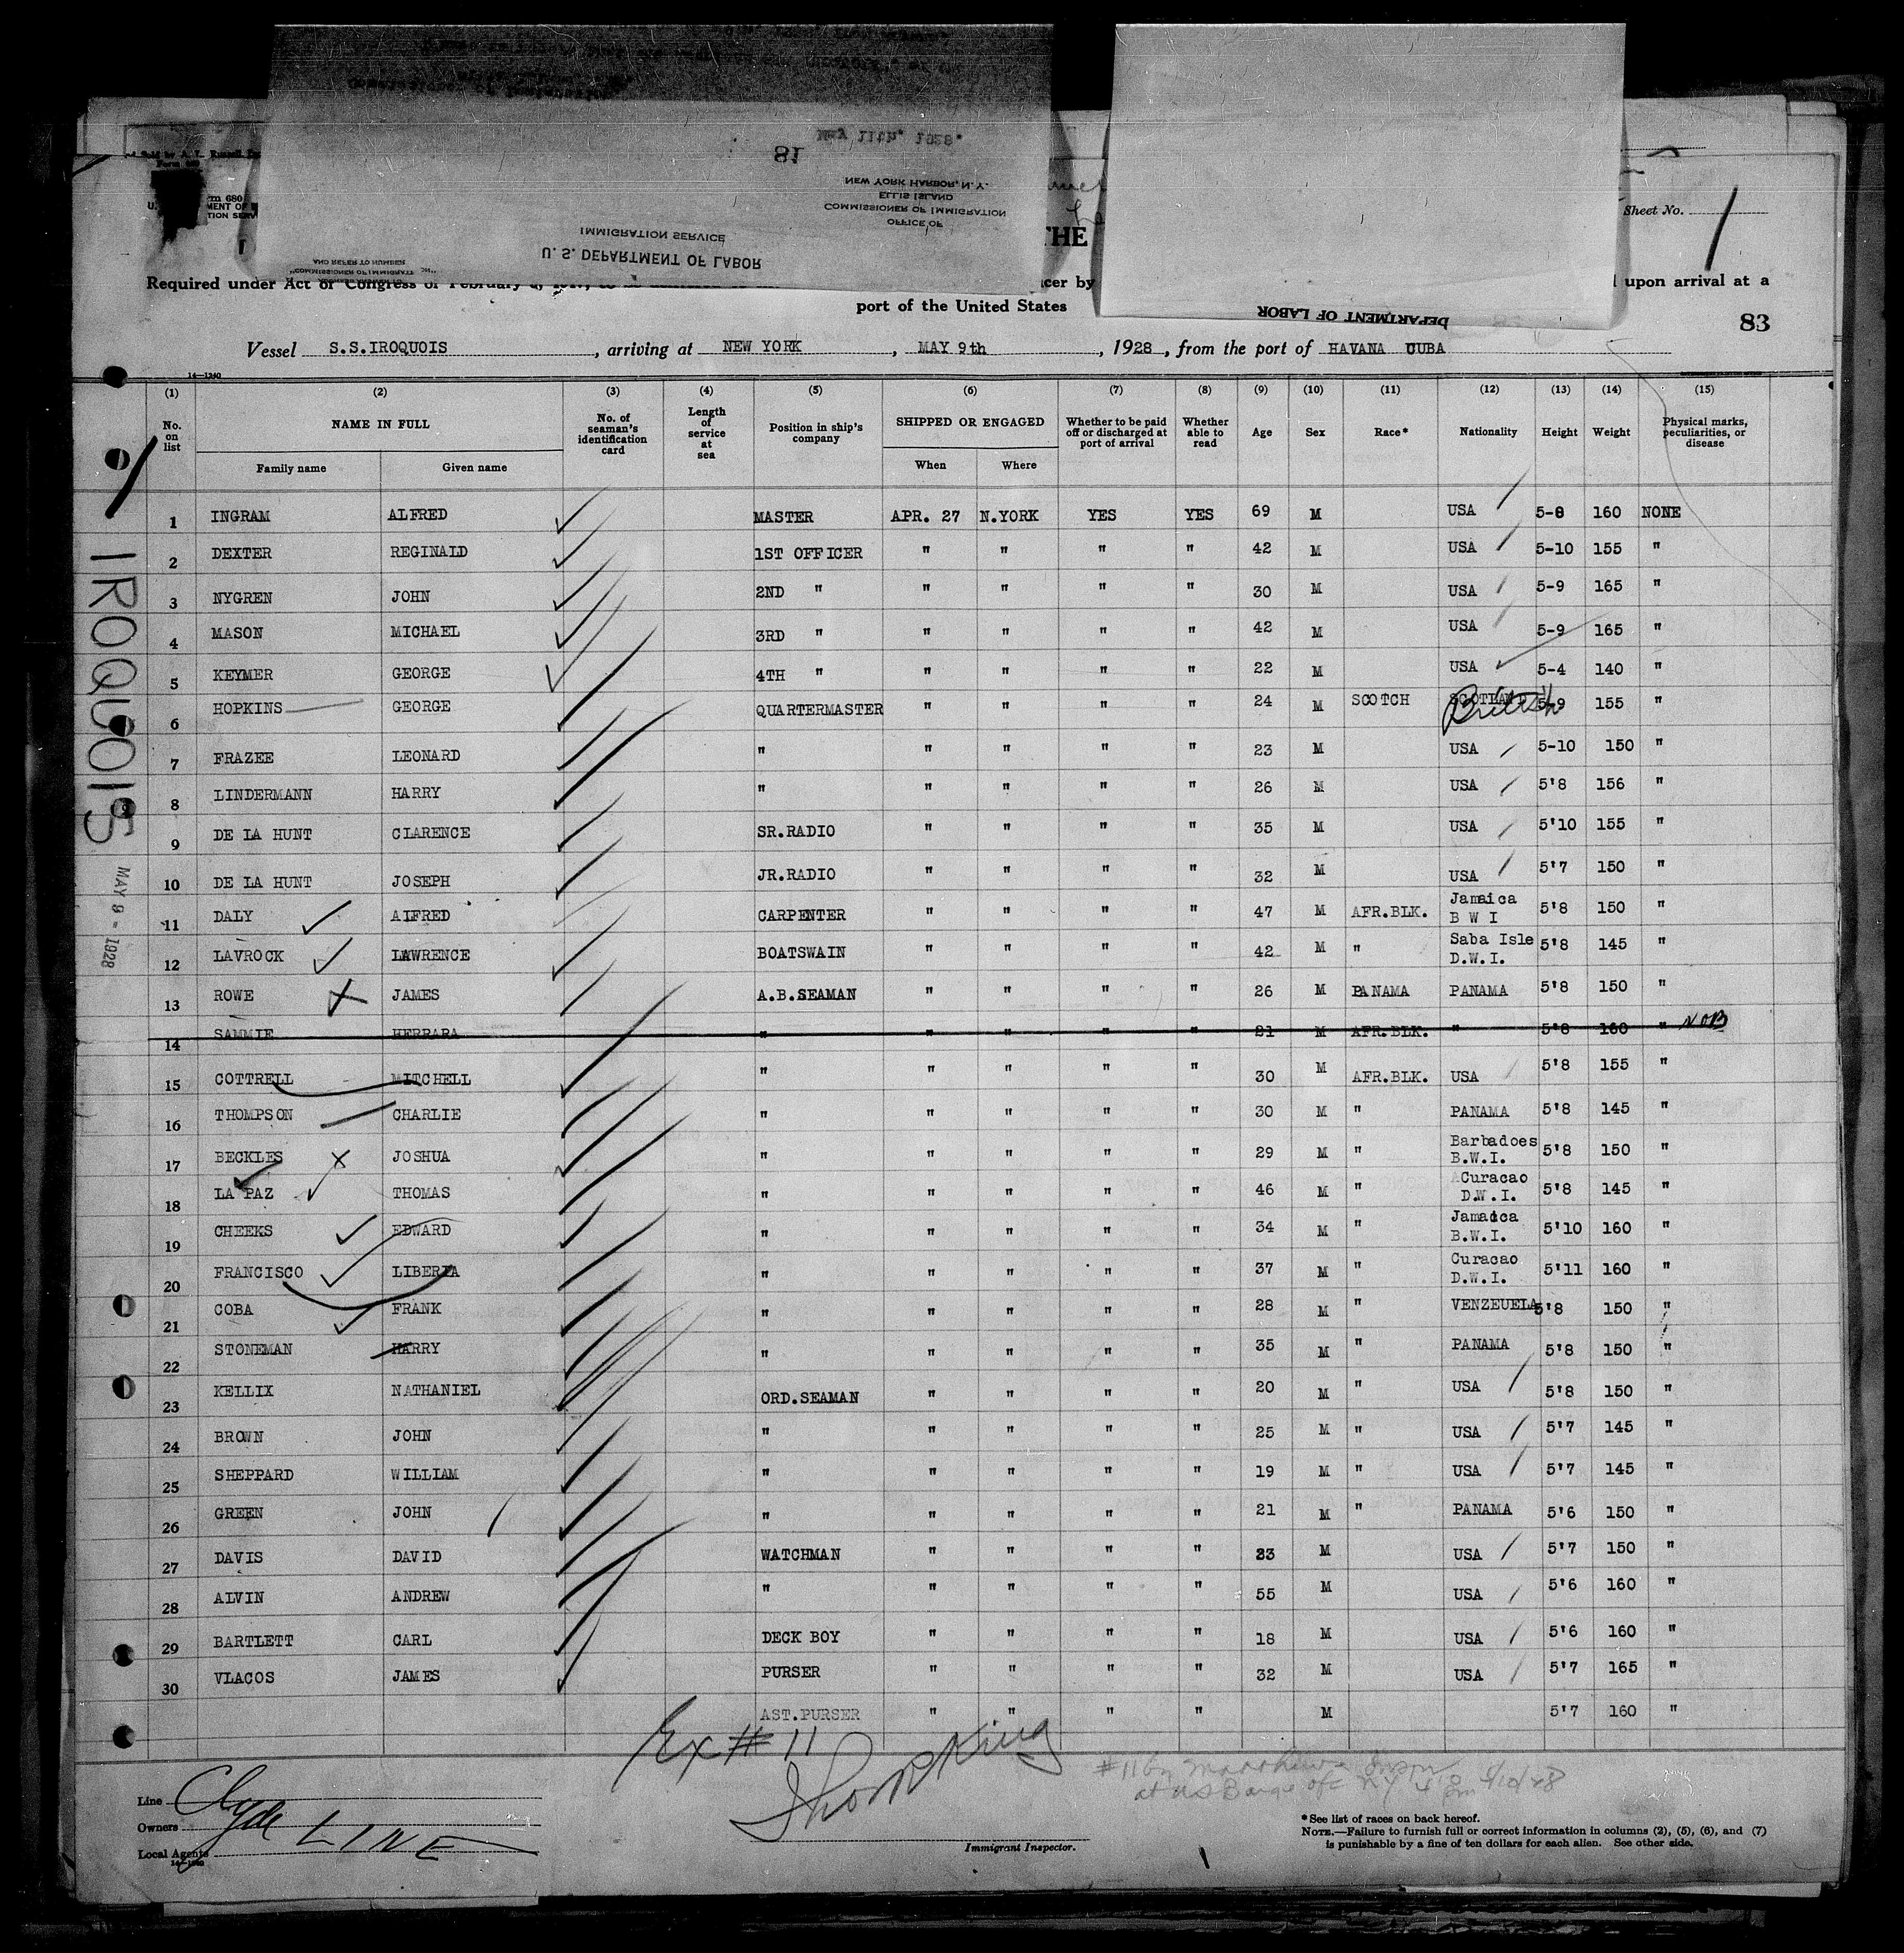 May 11th* 1928*
81
NEW YORK HARBOR, N.Y.
ELLIS ISLAND
COMMISSIONER OF IMMIGRATION
OFFICE OF
IMMIGRATION SERVICE
U. S. DEPARTMENT OF LABOR
AND REFER TO NUMBER
DEPARTMENT OF LABOR
THE
Sheet No. 1
Required under Act of Congress of February
upon arrival at a
port of the United States
83
Vessel S.S.IROQUOIS, arriving at NEW YORK, MAY 9th, 1928, from the port of HAVANA CUBA
14-1240
(1) (2) (3) (4) (5) (6) (7) (8) (9) (10) (11) (12) (13) (14) (15)
No. on list NAME IN FULL No. of seaman's identification card Length of service at sea Position in ship's company SHIPPED OR ENGAGED Whether to be paid off or discharged at port of arrival Whether able to read Age Sex Race* Nationality Height Weight Physical marks, peculiarities, or disease
Family name Given name When Where
1 INGRAM ALFRED MASTER APR. 27 N.YORK YES YES 69 M USA 5-8 160 NONE
2 DEXTER REGINALD 1ST OFFICER " " " " 42 M USA 5-10 155 "
3 NYGREN JOHN 2ND " " " " " 30 M USA 5-9 165 "
4 MASON MICHAEL 3RD " " " " " 42 M USA 5-9 165 "
5 KEYMER GEORGE 4TH " " " " " 22 M USA 5-4 140 "
6 HOPKINS GEORGE QUARTERMASTER " " " " 24 M SCOTCH SCOTLAND British 5-9 155 "
7 FRAZEE LEONARD " " " " " 23 M USA 5-10 150 "
8 LINDERMANN HARRY " " " " " 26 M USA 5'8 156 "
9 DE LA HUNT CLARENCE SR.RADIO " " " " 35 M USA 5'10 155 "
10 DE LA HUNT JOSEPH JR.RADIO " " " " 32 M USA 5'7 150 "
11 DALY ALFRED CARPENTER " " " " 47 M AFR.BLK. Jamaica B W I 5'8 150 "
12 LAVROCK LAWRENCE BOATSWAIN " " " " 42 M " Saba Isle D.W.I. 5'8 145 "
13 ROWE JAMES A.B.SEAMAN " " " " 26 M PANAMA PANAMA 5'8 150 "
14 SAMMIE HERRARA " " " " " 21 M AFR.BLK. " 5'8 160 " NOB
15 COTTRELL MITCHELL " " " " " 30 M AFR.BLK. USA 5'8 155 "
16 THOMPSON CHARLIE " " " " " 30 M " PANAMA 5'8 145 "
17 BECKLES JOSHUA " " " " " 29 M " Barbadoes B.W.I. 5'8 150 "
18 LA PAZ THOMAS " " " " " 46 M " Curacao D.W.I. 5'8 145 "
19 CHEEKS EDWARD " " " " " 34 M " Jamaica B.W.I. 5'10 160 "
20 FRANCISCO LIBERIA " " " " " 37 M " Curacao D.W.I. 5'11 160 "
21 COBA FRANK " " " " " 28 M " VENZEUELA 5'8 150 "
22 STONEMAN HARRY " " " " " 35 M " PANAMA 5'8 150 "
23 KELLIX NATHANIEL ORD.SEAMAN " " " " 20 M " USA 5'8 150 "
24 BROWN JOHN " " " " " 25 M " USA 5'7 145 "
25 SHEPPARD WILLIAM " " " " " 19 M " USA 5'7 145 "
26 GREEN JOHN " " " " " 21 M " PANAMA 5'6 150 "
27 DAVIS DAVID WATCHMAN " " " " 23 M USA 5'7 150 "
28 ALVIN ANDREW " " " " " 55 M USA 5'6 160 "
29 BARTLETT CARL DECK BOY " " " " 18 M USA 5'6 160 "
30 VLACOS JAMES PURSER " " " " 32 M USA 5'7 165 "
AST.PURSER " " " " M 5'7 160 "
IROQUOIS
MAY 9 - 1928
Ex # 11
Line Clyde
Owners LINE
Local Agents
Immigrant Inspector.
*See list of races on back hereof.
NOTE.—Failure to furnish full or correct information in columns (2), (5), (6), and (7)
is punishable by a fine of ten dollars for each alien. See other side.